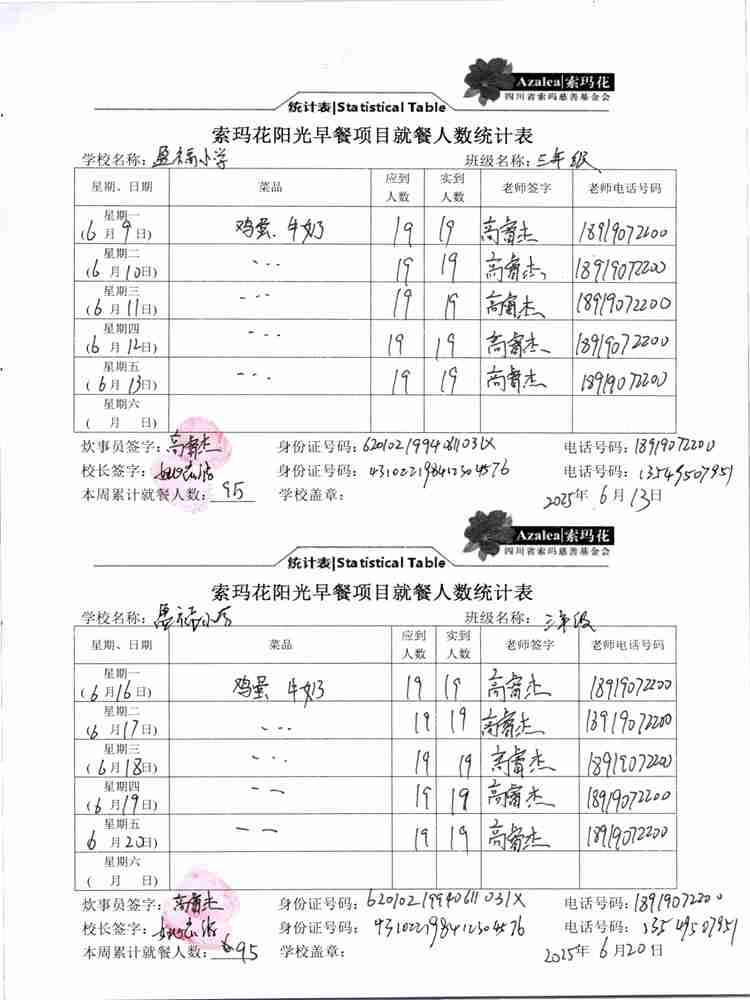 Azalea|索玛花
四川省索玛慈善基金会
统计表|Statistical Table
索玛花阳光早餐项目就餐人数统计表
学校名称：盈福小学 班级名称：三年级
星期、日期 菜品 应到人数 实到人数 老师签字 老师电话号码
星期一 (6月9日) 鸡蛋、牛奶 19 19 高睿杰 18919072200
星期二 (6月10日) 、、、 19 19 高睿杰 18919072200
星期三 (6月11日) 、、、 19 19 高睿杰 18919072200
星期四 (6月12日) 、、、 19 19 高睿杰 18919072200
星期五 (6月13日) 、、、 19 19 高睿杰 18919072200
星期六 ( 月 日)
炊事员签字：高睿杰 身份证号码：62010219940611031X 电话号码：18919072200
校长签字： 身份证号码：431022198412304576 电话号码：13549507951
本周累计就餐人数：95 学校盖章： 2025年6月13日
Azalea|索玛花
四川省索玛慈善基金会
统计表|Statistical Table
索玛花阳光早餐项目就餐人数统计表
学校名称：盈福小学 班级名称：三年级
星期、日期 菜品 应到人数 实到人数 老师签字 老师电话号码
星期一 (6月16日) 鸡蛋 牛奶 19 19 高睿杰 18919072200
星期二 (6月17日) 、、、 19 19 高睿杰 18919072200
星期三 (6月18日) 、、、 19 19 高睿杰 18919072200
星期四 (6月19日) 、、 19 19 高睿杰 18919072200
星期五 6月20日) 、、 19 19 高睿杰 18919072200
星期六 ( 月 日)
炊事员签字：高睿杰 身份证号码：62010219940611031X 电话号码：18919072200
校长签字： 身份证号码：431022198412304576 电话号码：13549507951
本周累计就餐人数：95 学校盖章： 2025年6月20日